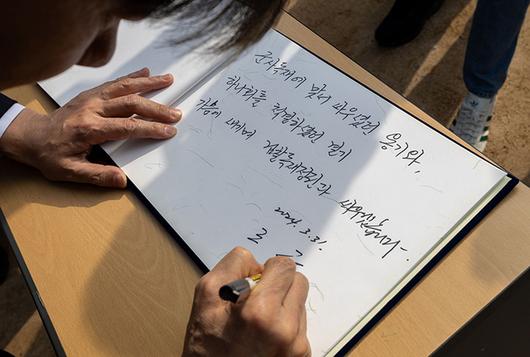 군사독재에 맞서 싸우셨던 용기와,
하나회를 척결하셨던 결기
가슴에 새기며 검찰독재정권과 싸우겠습니다.
2024. 3. 31.
조